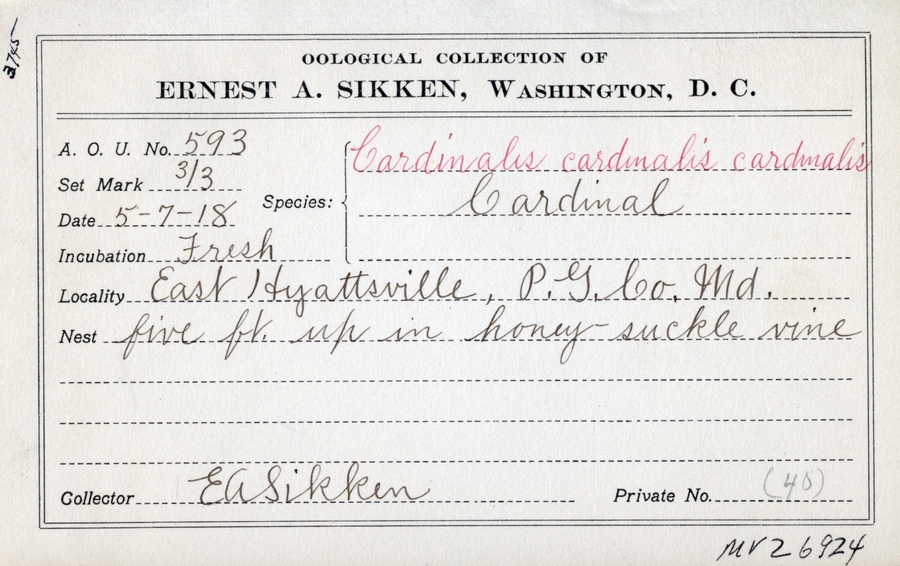 3745
OOLOGICAL COLLECTION OF
ERNEST A. SIKKEN, WASHINGTON, D. C.
A. O. U. No. 593
Set Mark 3/3
Date 5-7-18
Incubation Fresh
Species: Cardinalis cardinalis cardinalis
Cardinal
Locality East Hyattsville, P. G. Co. Md.
Nest five ft. up in honey-suckle vine
Collector EASikken
Private No. (40)
MVZ 6924